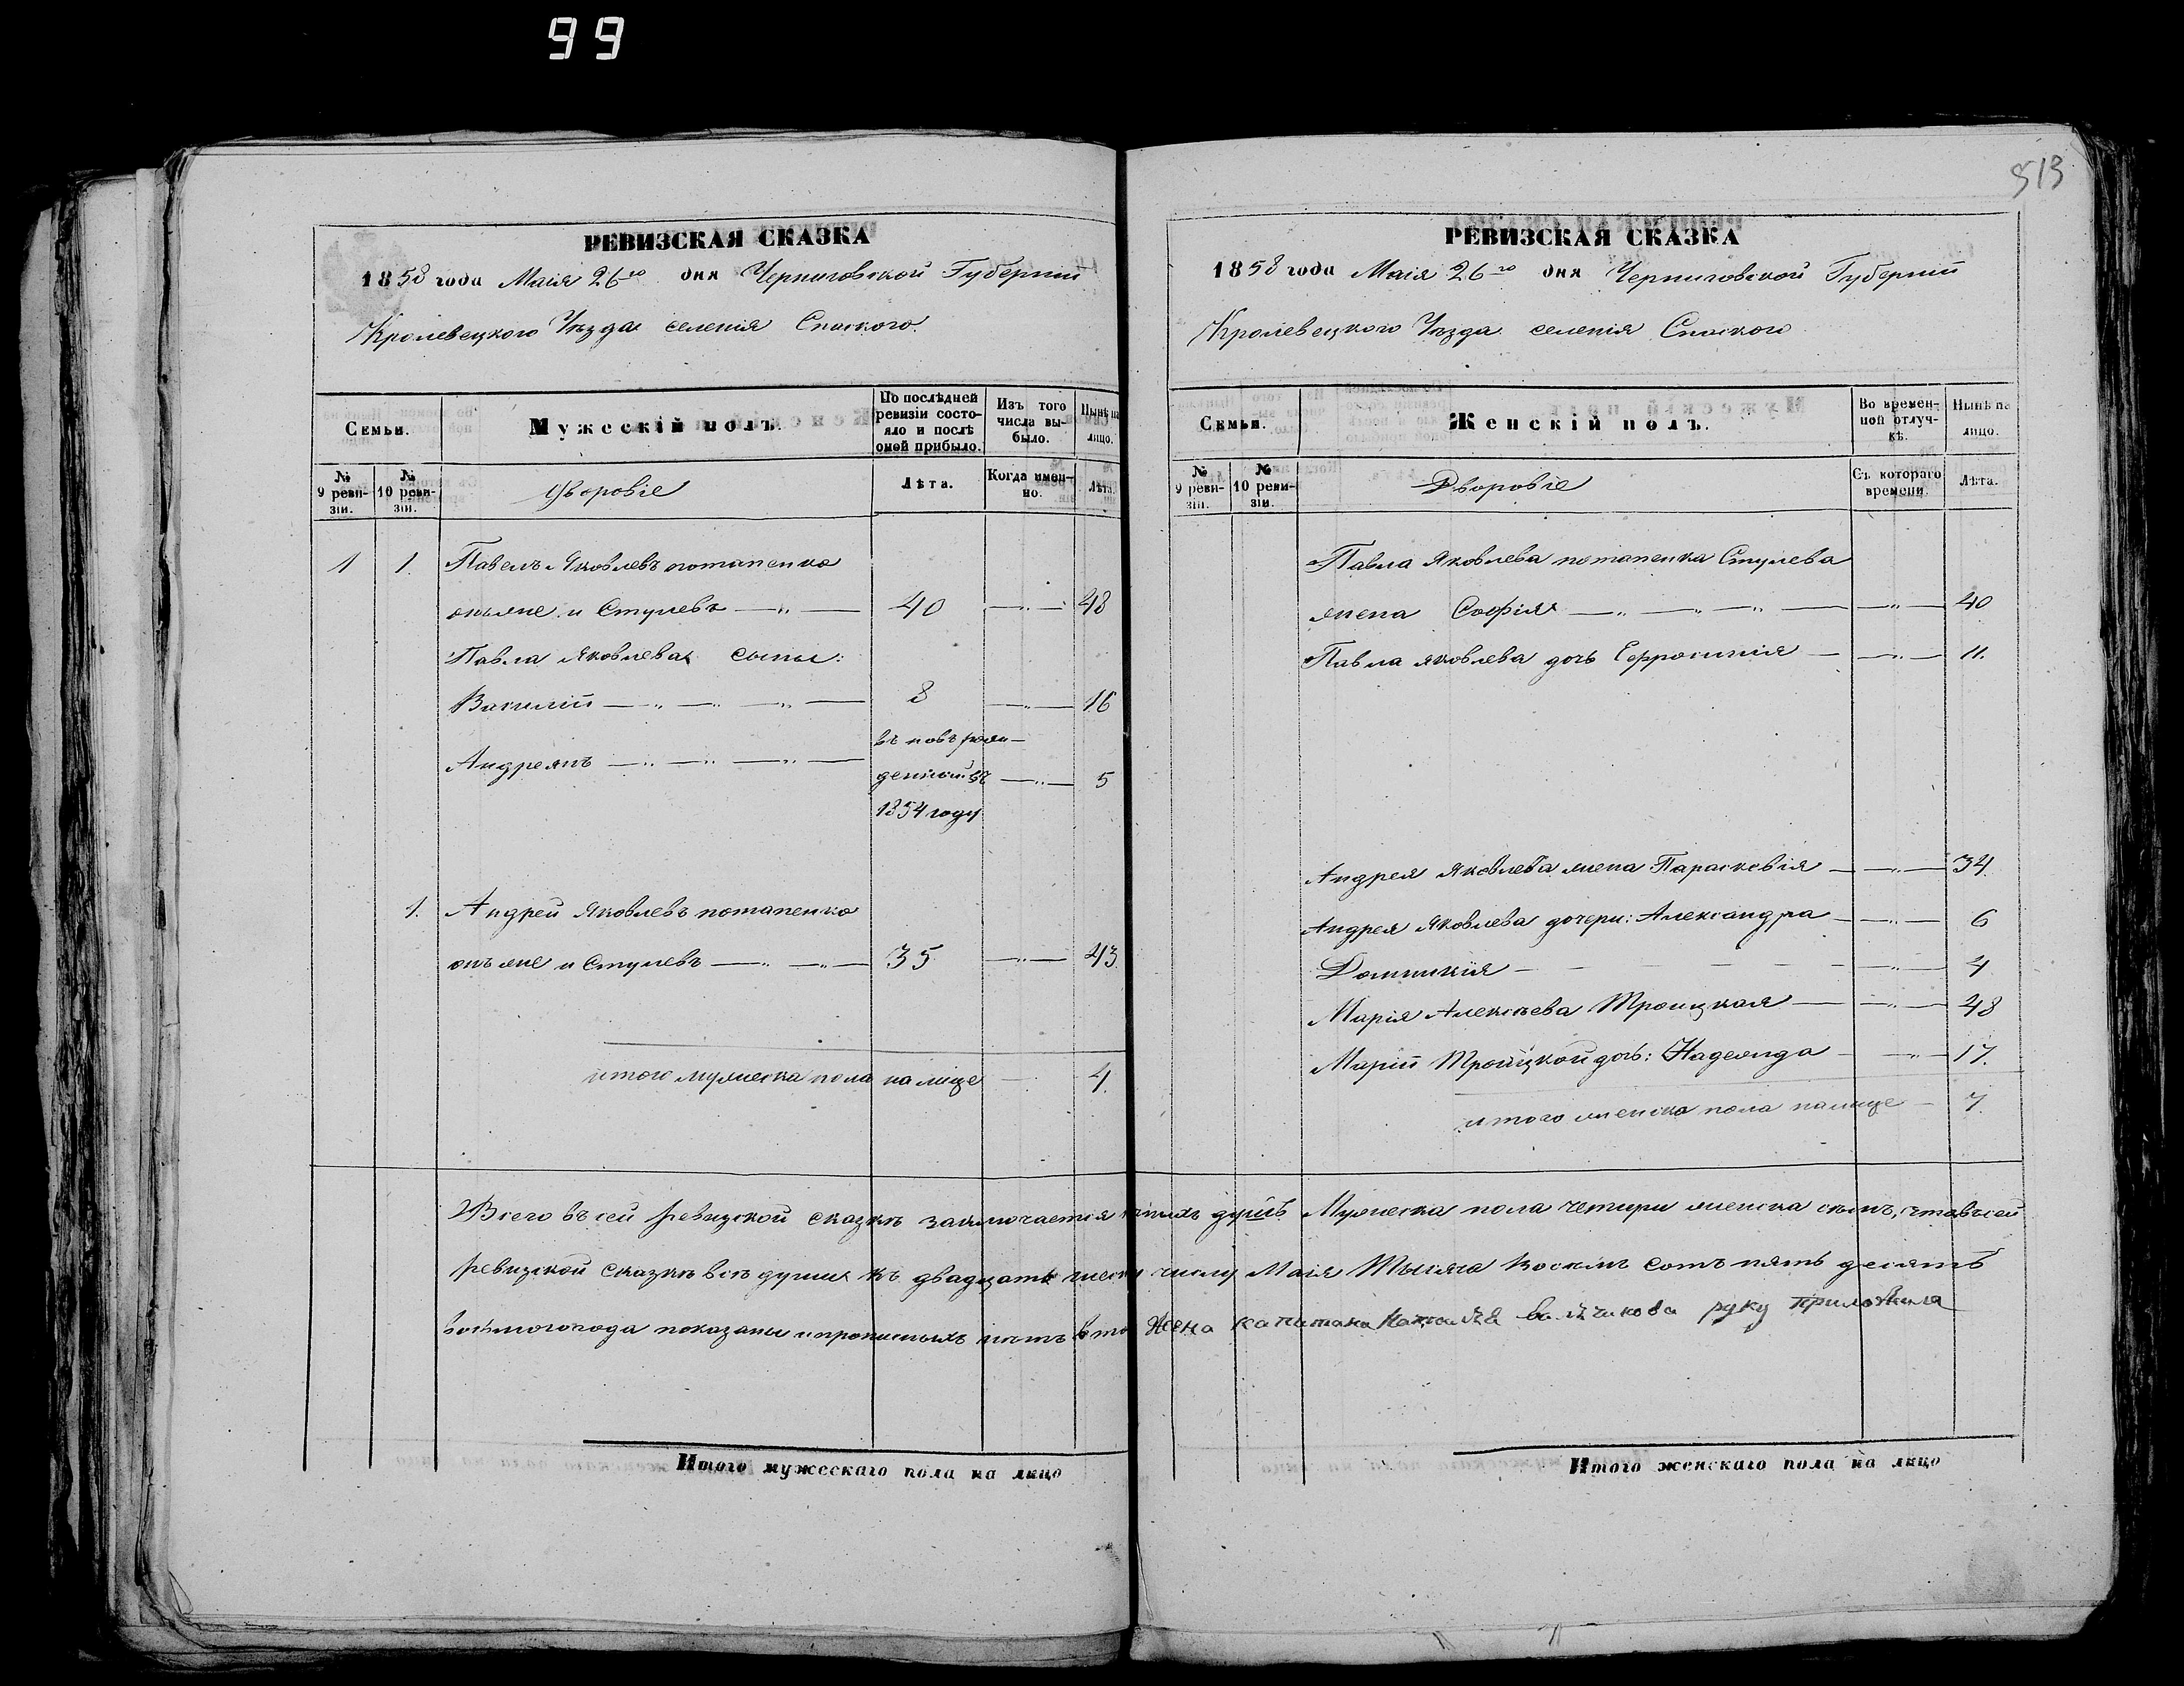 99
513
РЕВИЗСКАЯ СКАЗКА
1858 года Маія 26го дня Черниговской Губерніи
Кролевецкого Уѣзда селенія Спаского
Семьи.
Мужескій полъ.
По послѣдней ревизіи состояло и послѣ оной прибыло.
Изъ того числа выбыло.
Нынѣ на лицо.
№ 9 ревизіи.
№ 10 ревизіи.
Дворовіе
Лѣта.
Когда именно.
Лѣта.
1 1. Павелъ Яковлевъ потапенко
онъ же и Стулевъ 40 48
Павла Яковлева сыны:
Василій 8 16
Андреянъ въ новъ рож-
денный въ 5
1854 году
1. Андрей Яковлевъ потапенко
онъ же и Стулевъ 35 43
итого мужеска пола на лице 4.
РЕВИЗСКАЯ СКАЗКА
1858 года Маія 26го дня Черниговской Губерніи
Кролевецкого Уѣзда селенія Спаского
Семьи.
Женскій полъ.
Во временной отлучкѣ.
Нынѣ на лицо.
№ 9 ревизіи.
№ 10 ревизіи.
Дворовіе
Съ котораго времени.
Лѣта.
Павла Яковлева потапенка Стулева
жена Софія 40
Павла яковлева дочь Ефросинія 11.
Андрея Яковлева жена Парасковія 34
Андрея Яковлева дочери: Александра 6
Домникія 4
Марія Алексѣева Троицкая 48
Маріи Троицкой дочь: Надежда 17.
итого женска пола на лице 7.
Всего въ сей ревизской сказкѣ заключается душъ Мужеска пола четыри женска семъ, что въ сей
ревизской сказкѣ всѣ души къ двадцать числу Маія Тысяча восемъ сотъ пять десятъ
восьмого года показаны и прописныхъ нѣтъ в том Жена капитана руку приложила
Итого мужескаго пола на лицо
Итого женскаго пола на лицо